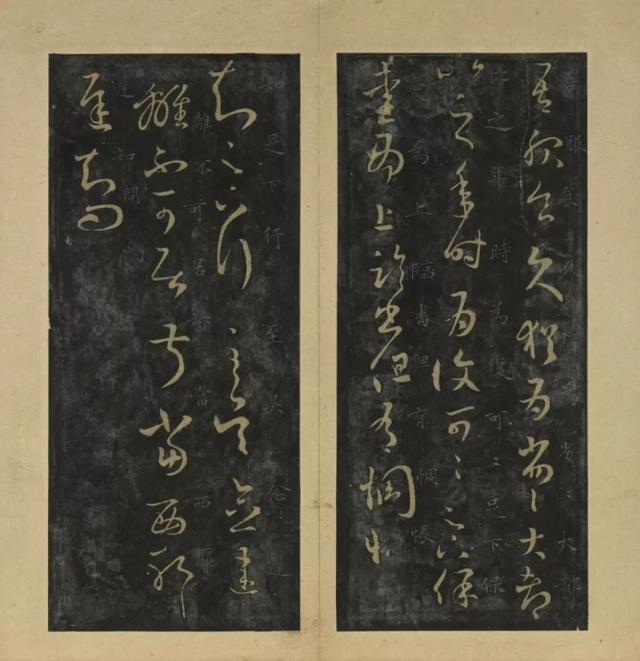 吾服食久猶為劣〻大都
比之年時為復可〻足下保
愛為上臨書但有惆悵
知足下行至吳念違
離不可居叔當西耶
遲知問